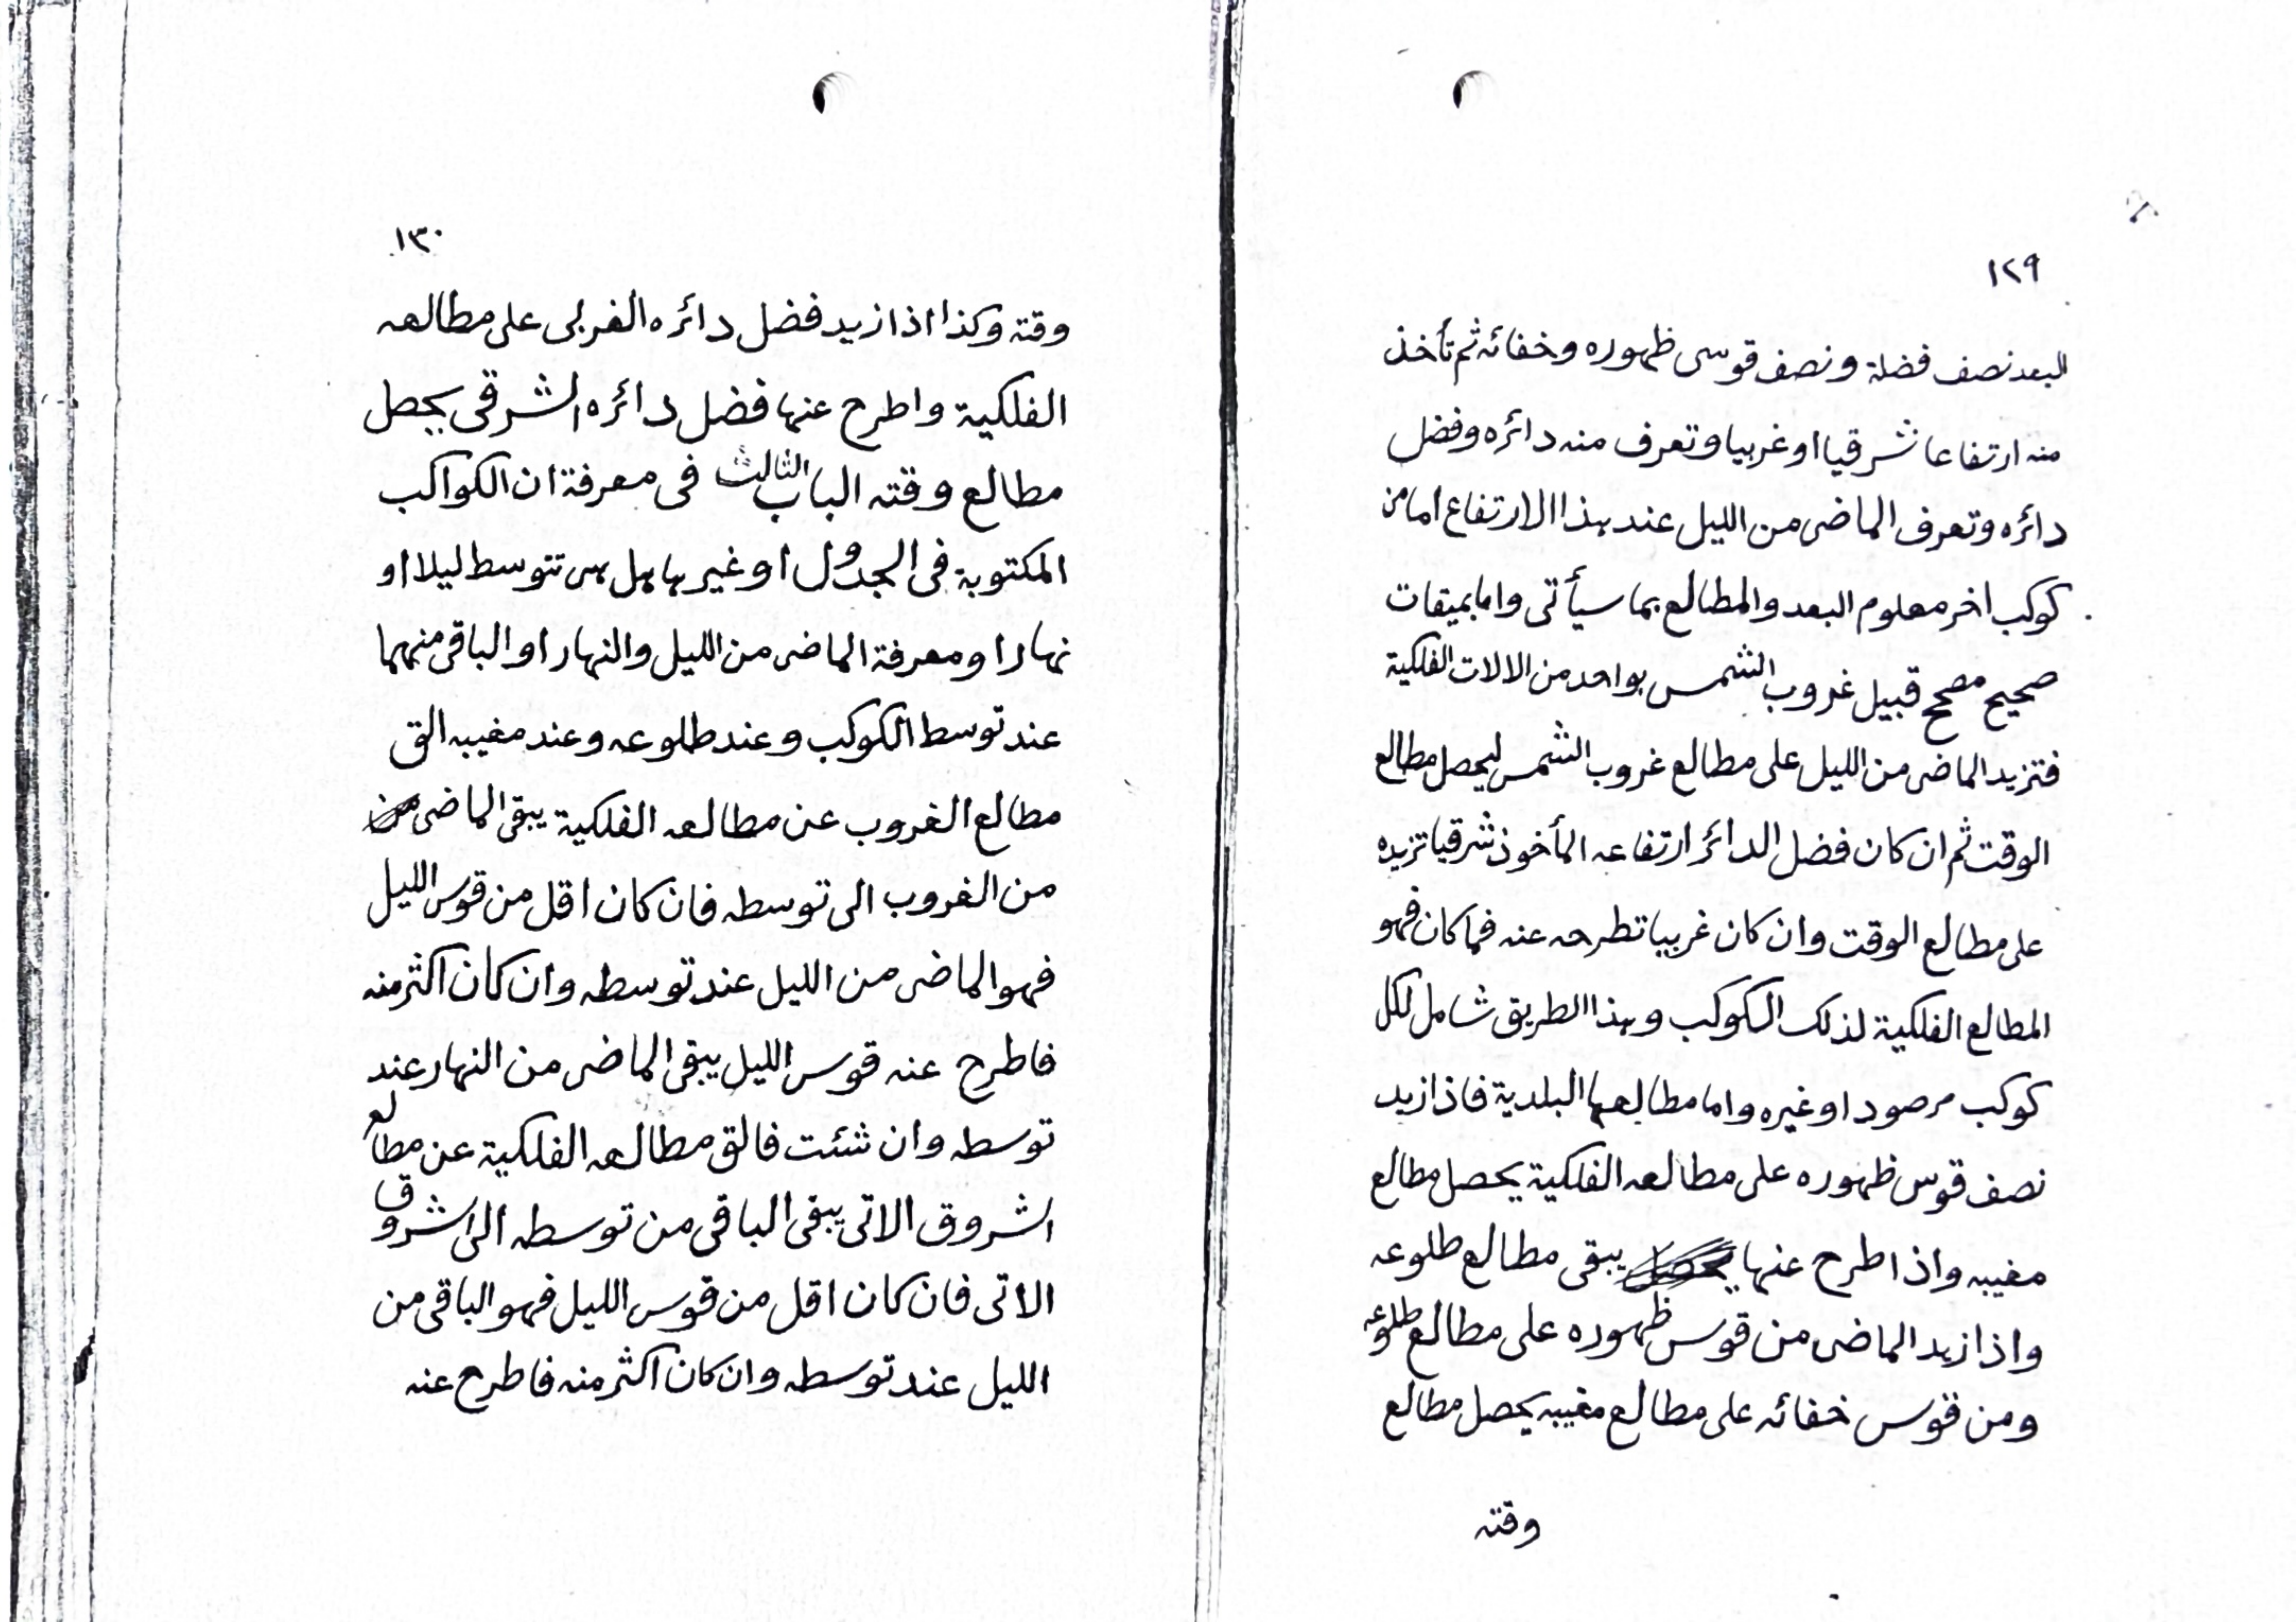 ١٢٩
البعد نصف فضلة ونصف قوسى ظهوره وخفائه ثم تأخذ
منه ارتفاعا شرقيا او غربيا وتعرف منه دائره وفضل
دائره وتعرف الماضى من الليل عند هذا الارتفاع اما من
كوكب اخر معلوم البعد والمطالع بما سيأتى واما بميقات
صحيح مصحح قبيل غروب الشمس بواحد من الالات الفلكية
فتزيد الماضى من الليل على مطالع غروب الشمس ليحصل مطالع
الوقت ثم ان كان فضل الدائر ارتفاعه المأخوذ شرقيا تزيده
على مطالع الوقت وان كان غربيا تطرحه عنه فما كان فهو
المطالع الفلكية لذلك الكوكب وهذا الطريق شامل لكل
كوكب مرصود او غيره واما مطالعها البلدية فاذا زيد
نصف قوس ظهوره على مطالعه الفلكية يحصل مطالع
مغيبه واذا طرح عنها يبقى مطالع طلوعه
واذا زيد الماضى من قوس ظهوره على مطالع طلوعه
ومن قوس خفائه على مطالع مغيبه يحصل مطالع
وقته
١٣٠
وقته وكذا اذا زيد فضل دائره الغربى على مطالعه
الفلكية واطرح عنها فضل دائره الشرقى يحصل
مطالع وقته الباب الثالث فى معرفة ان الكواكب
المكتوبة فى الجدول او غيرها هل هى تتوسط ليلا او
نهارا ومعرفة الماضى من الليل والنهار او الباقى منهما
عند توسط الكوكب وعند طلوعه وعند مغيبه الق
مطالع الغروب عن مطالعه الفلكية يبقى الماضى
من الغروب الى توسطه فان كان اقل من قوس الليل
فهو الماضى من الليل عند توسطه وان كان اكثر منه
فاطرح عنه قوس الليل يبقى الماضى من النهار عند
توسطه وان شئت فالق مطالعه الفلكية عن مطالع
الشروق الاتى يبقى الباقى من توسطه الى الشروق
الاتى فان كان اقل من قوس الليل فهو الباقى من
الليل عند توسطه وان كان اكثر منه فاطرح عنه